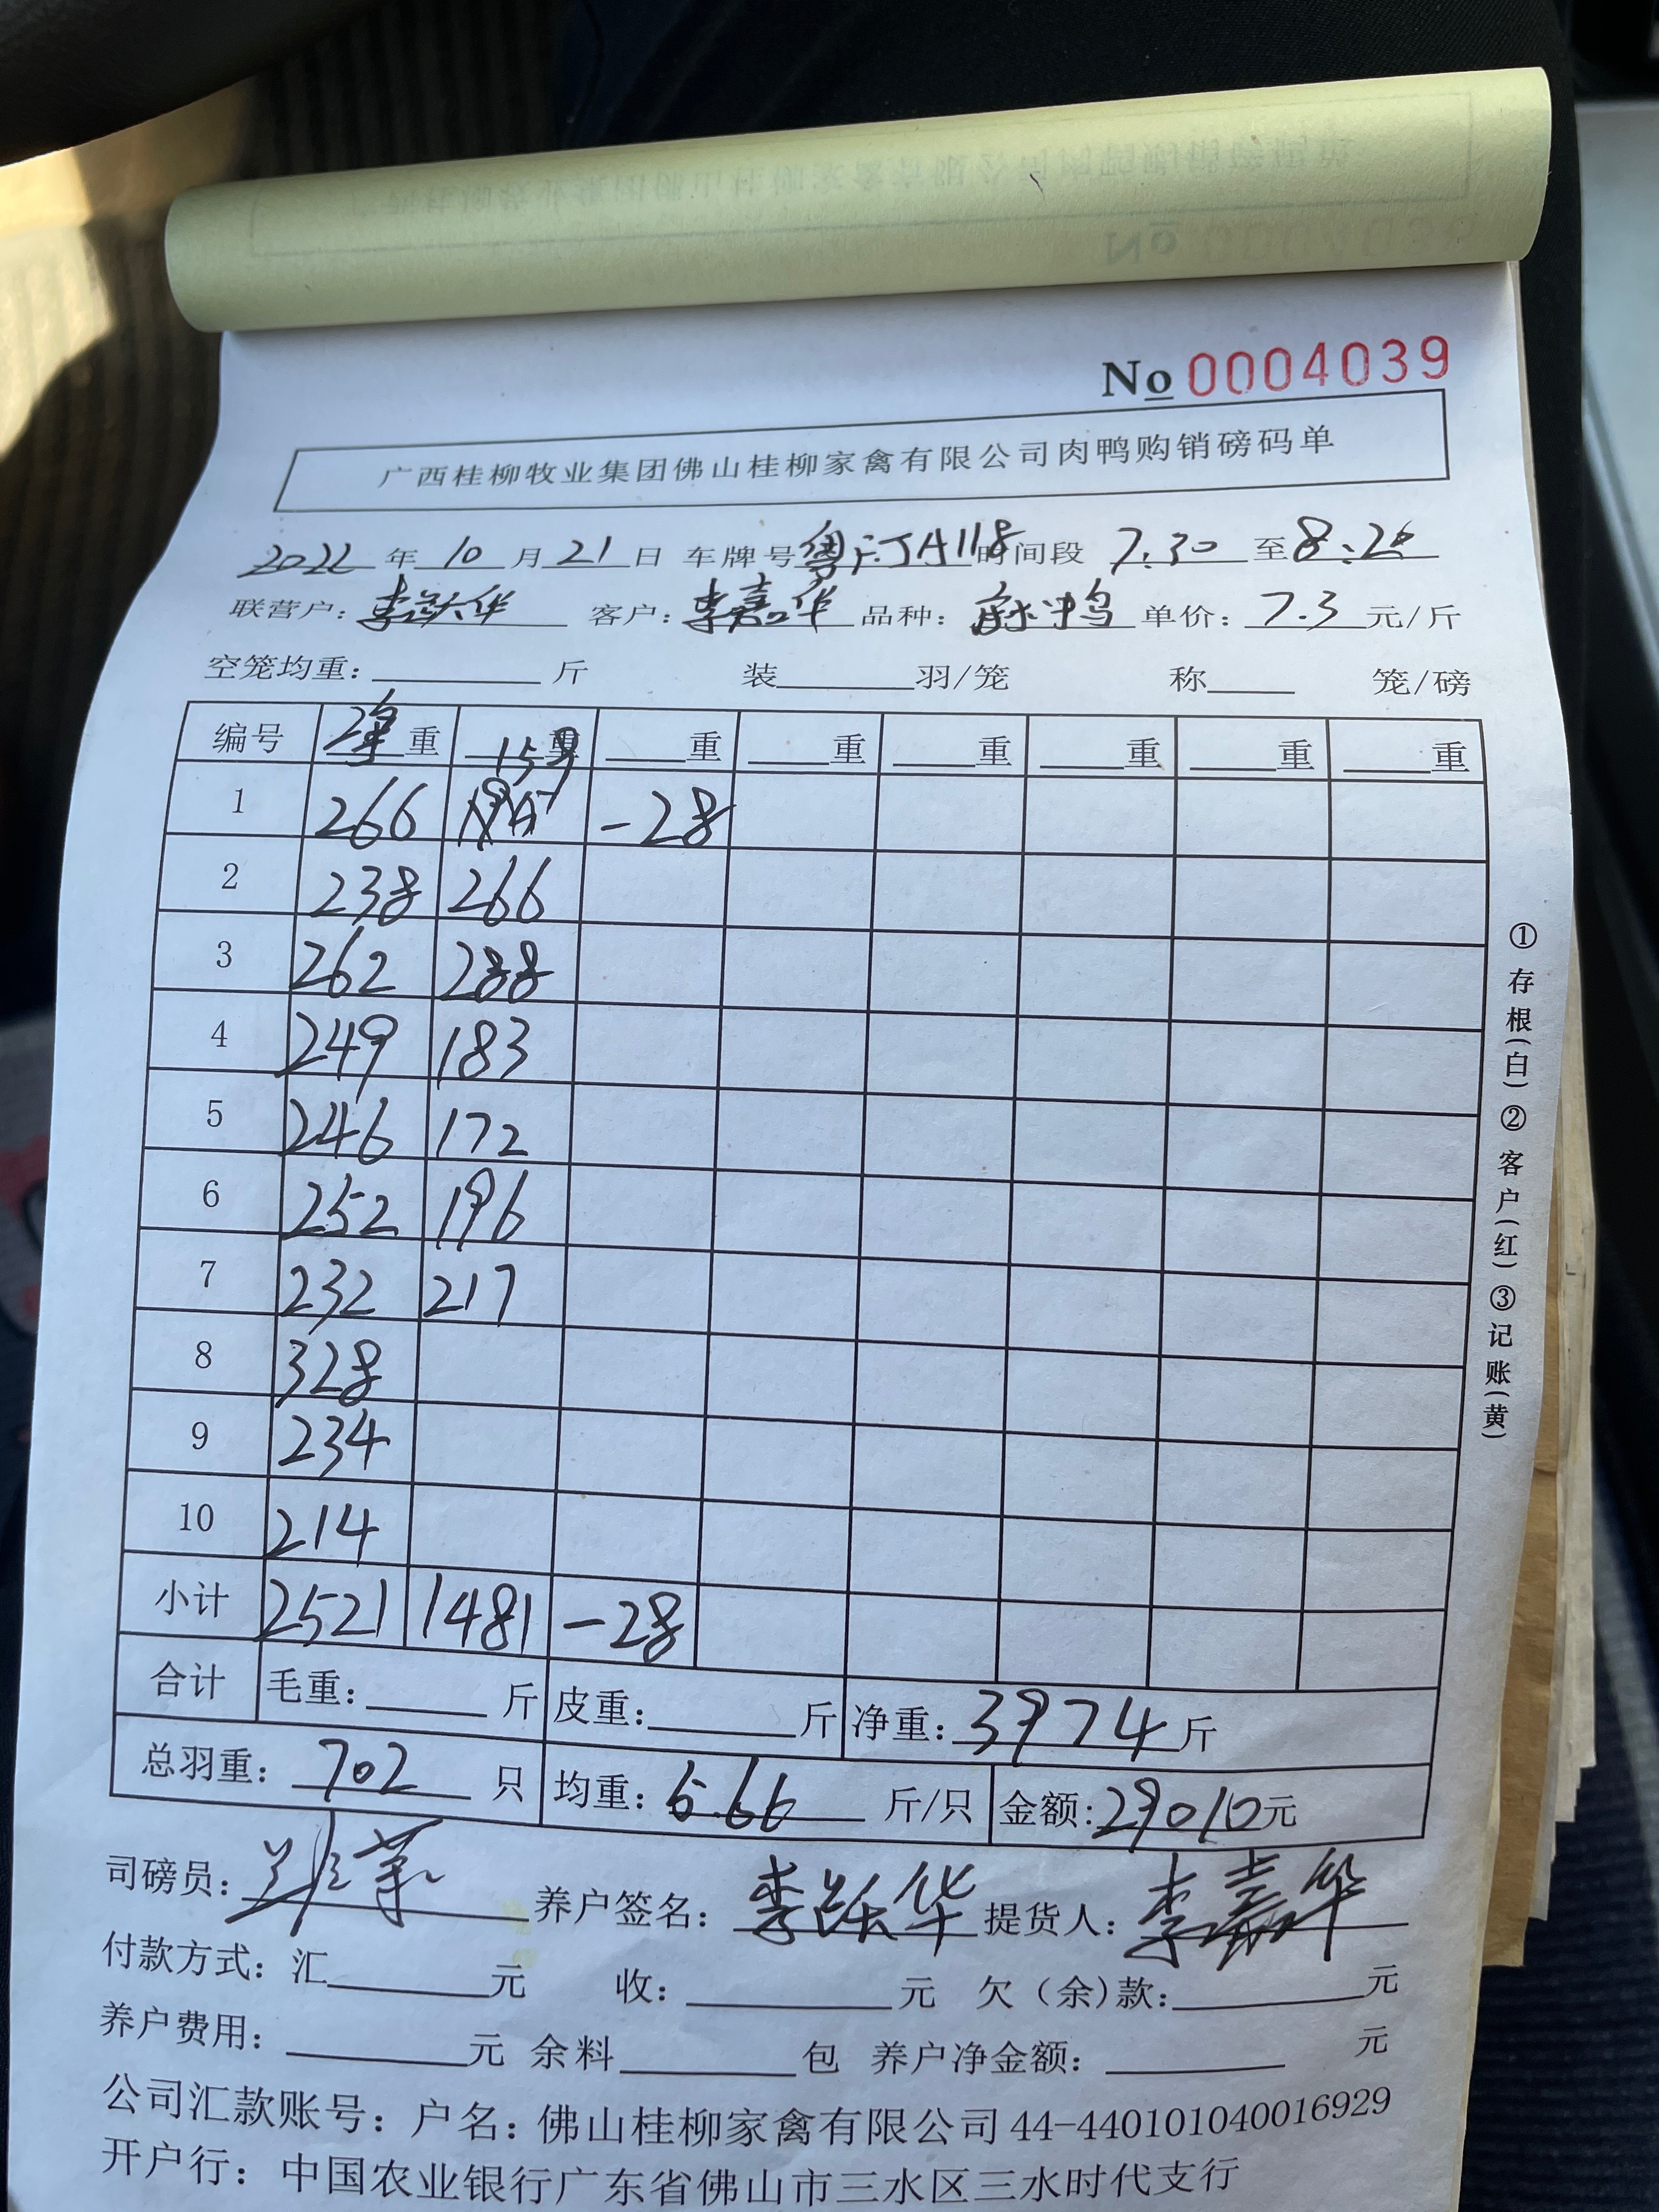 No 0004039
广西桂柳牧业集团佛山桂柳家禽有限公司肉鸭购销磅码单
2022 年 10 月 21 日 车牌号 粤 JA118 时间段 7.30 至 8.20
联营户：李跃华 客户：李嘉华 品种：麻鸭 单价：7.3 元/斤
空笼均重： 斤 装 羽/笼 称 笼/磅
编号 净重 159 重 重 重 重 重 重 重
1 266 -28
2 238 266
3 262 288
4 249 183
5 246 172
6 252 196
7 232 217
8 328
9 234
10 214
小计 2521 1481 -28
合计 毛重： 斤 皮重： 斤 净重：3974 斤
总羽重：702 只 均重：5.66 斤/只 金额：29010元
司磅员： 养户签名：李跃华 提货人：李嘉华
付款方式：汇 元 收： 元 欠（余）款： 元
养户费用： 元 余料 包 养户净金额： 元
公司汇款账号：户名：佛山桂柳家禽有限公司 44-440101040016929
开户行：中国农业银行广东省佛山市三水区三水时代支行
①存根(白)②客户(红)③记账(黄)